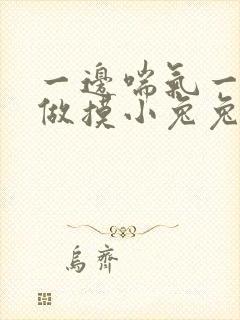 一邊喘氣一
做摸小兔兔
烏齊